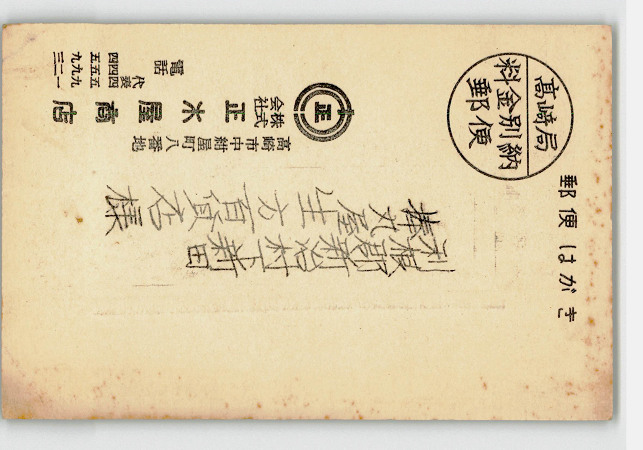 郵便はがき
高崎局
料金別納
郵便
利根郡新治村下新田
生方百貨店様
正
高崎市中紺屋町八番地
株式会社 正木屋商店
電話
代表
四五九三
四五九二
四五九一